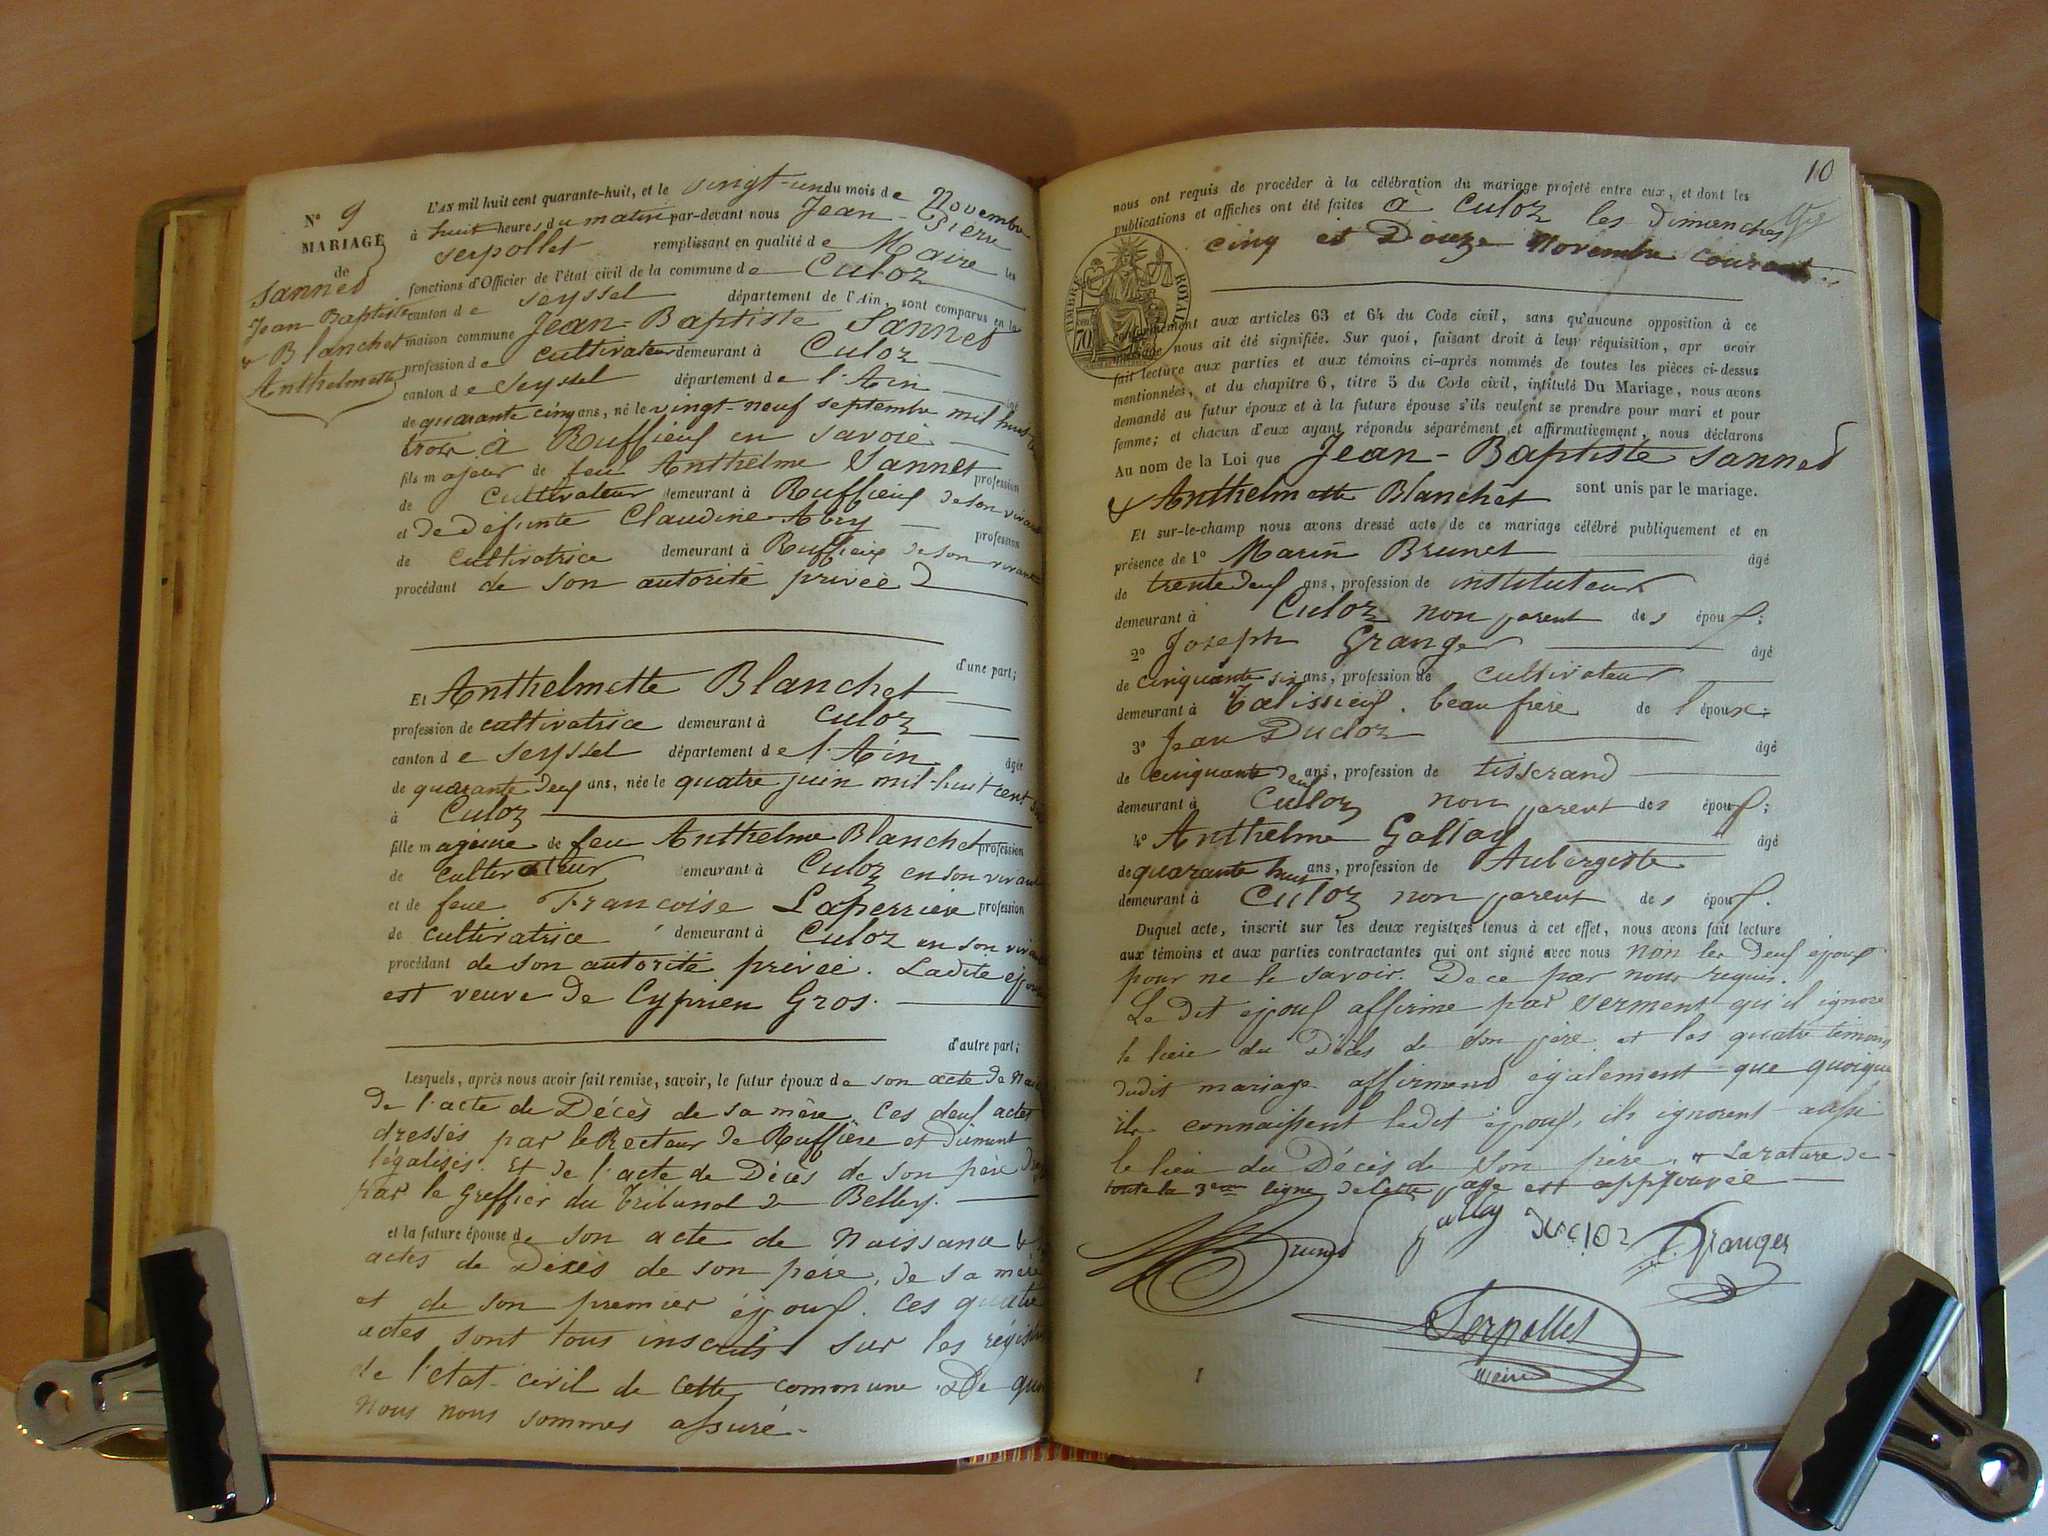 N° 9
MARIAGE
de
Sannet
Jean Baptiste
& Blanchet
Anthelmette
L'AN mil huit cent quarante-huit, et le vingt-un du mois de Novembre
à huit heures du matin par-devant nous Jean-Pierre
Serpollet remplissant en qualité de Maire les
fonctions d'Officier de l'état civil de la commune de Culoz
canton de Seyssel département de l'Ain, sont comparus en la
maison commune Jean-Baptiste Sannet
profession de cultivateur demeurant à Culoz
canton de Seyssel département de l'Ain âgé
de quarante cinq ans, né le vingt-neuf septembre mil huit cent
trois à Ruffieux en Savoie
fils majeur de feu Anthelme Sannet profession
de cultivateur demeurant à Ruffieux de son vivant
et de défunte Claudine Abry profession
de cultivatrice demeurant à Ruffieux de son vivant
procédant de son autorité privée
d'une part;
Et Anthelmette Blanchet
profession de cultivatrice demeurant à Culoz
canton de Seyssel département de l'Ain âgée
de quarante deux ans, née le quatre juin mil-huit cent six
à Culoz
fille majeure de feu Anthelme Blanchet profession
de cultivateur demeurant à Culoz en son vivant
et de feue Francoise Laperrière profession
de cultivatrice demeurant à Culoz en son vivant
procédant de son autorité privée. Ladite épouse
est veuve de Cyprien Gros.
d'autre part;
Lesquels, après nous avoir fait remise, savoir, le futur époux de son acte de
de l'acte de Décès de sa mère. Ces deux actes
dressés par le Recteur de Ruffière et dûment
légalisés. Et de l'acte de Décès de son père
par le Greffier du Tribunal de Belley.
et la future épouse de son acte de Naissance &
actes de Décès de son père, de sa mère
et de son premier époux. Ces quatre
actes sont tous inscrits sur les régistres
de l'état-civil de cette commune. De quoi
nous nous sommes assuré.
10
nous ont requis de procéder à la célébration du mariage projeté entre eux, et dont les
publications et affiches ont été faites à Culoz les dimanches
cinq et Douze Novembre courant
TIMBRE ROYAL
70
Conformément aux articles 63 et 64 du Code civil, sans qu'aucune opposition à ce
mariage nous ait été signifiée. Sur quoi, faisant droit à leur réquisition, apr avoir
fait lecture aux parties et aux témoins ci-après nommés de toutes les pièces ci-dessus
mentionnées, et du chapitre 6, titre 5 du Code civil, intitulé Du Mariage, nous avons
demandé au futur époux et à la future épouse s'ils veulent se prendre pour mari et pour
femme; et chacun d'eux ayant répondu séparément et affirmativement, nous déclarons
Au nom de la Loi que Jean-Baptiste Sannet
& Anthelmette Blanchet sont unis par le mariage.
Et sur-le-champ nous avons dressé acte de ce mariage célébré publiquement et en
présence de 1° Marin Brunet âgé
de trente deux ans, profession de instituteur
demeurant à Culoz non parent des époux;
2° Joseph Granger âgé
de cinquante six ans, profession de cultivateur
demeurant à Talissieux. beau frère de l'époux;
3° Jean Ducloz âgé
de cinquante deux ans, profession de tisserand
demeurant à Culoz non parent des époux;
4° Anthelme Gallay âgé
de quarante huit ans, profession de Aubergiste
demeurant à Culoz non parent des époux.
Duquel acte, inscrit sur les deux registres tenus à cet effet, nous avons fait lecture
aux témoins et aux parties contractantes qui ont signé avec nous non les deux époux
pour ne le savoir. De ce par nous requis.
Le dit époux affirme par serment qu'il ignore
le lieu du Décès de son père. et les quatre témoins
dudit mariage affirment également que quoique
ils connaissent ledit époux, ils ignorent aussi
le lieu du Décès de son père. & La rature de
toute la 3eme ligne de cette page est approuvée
Brunet Gallay Ducloz Granger
Serpollet
Maire